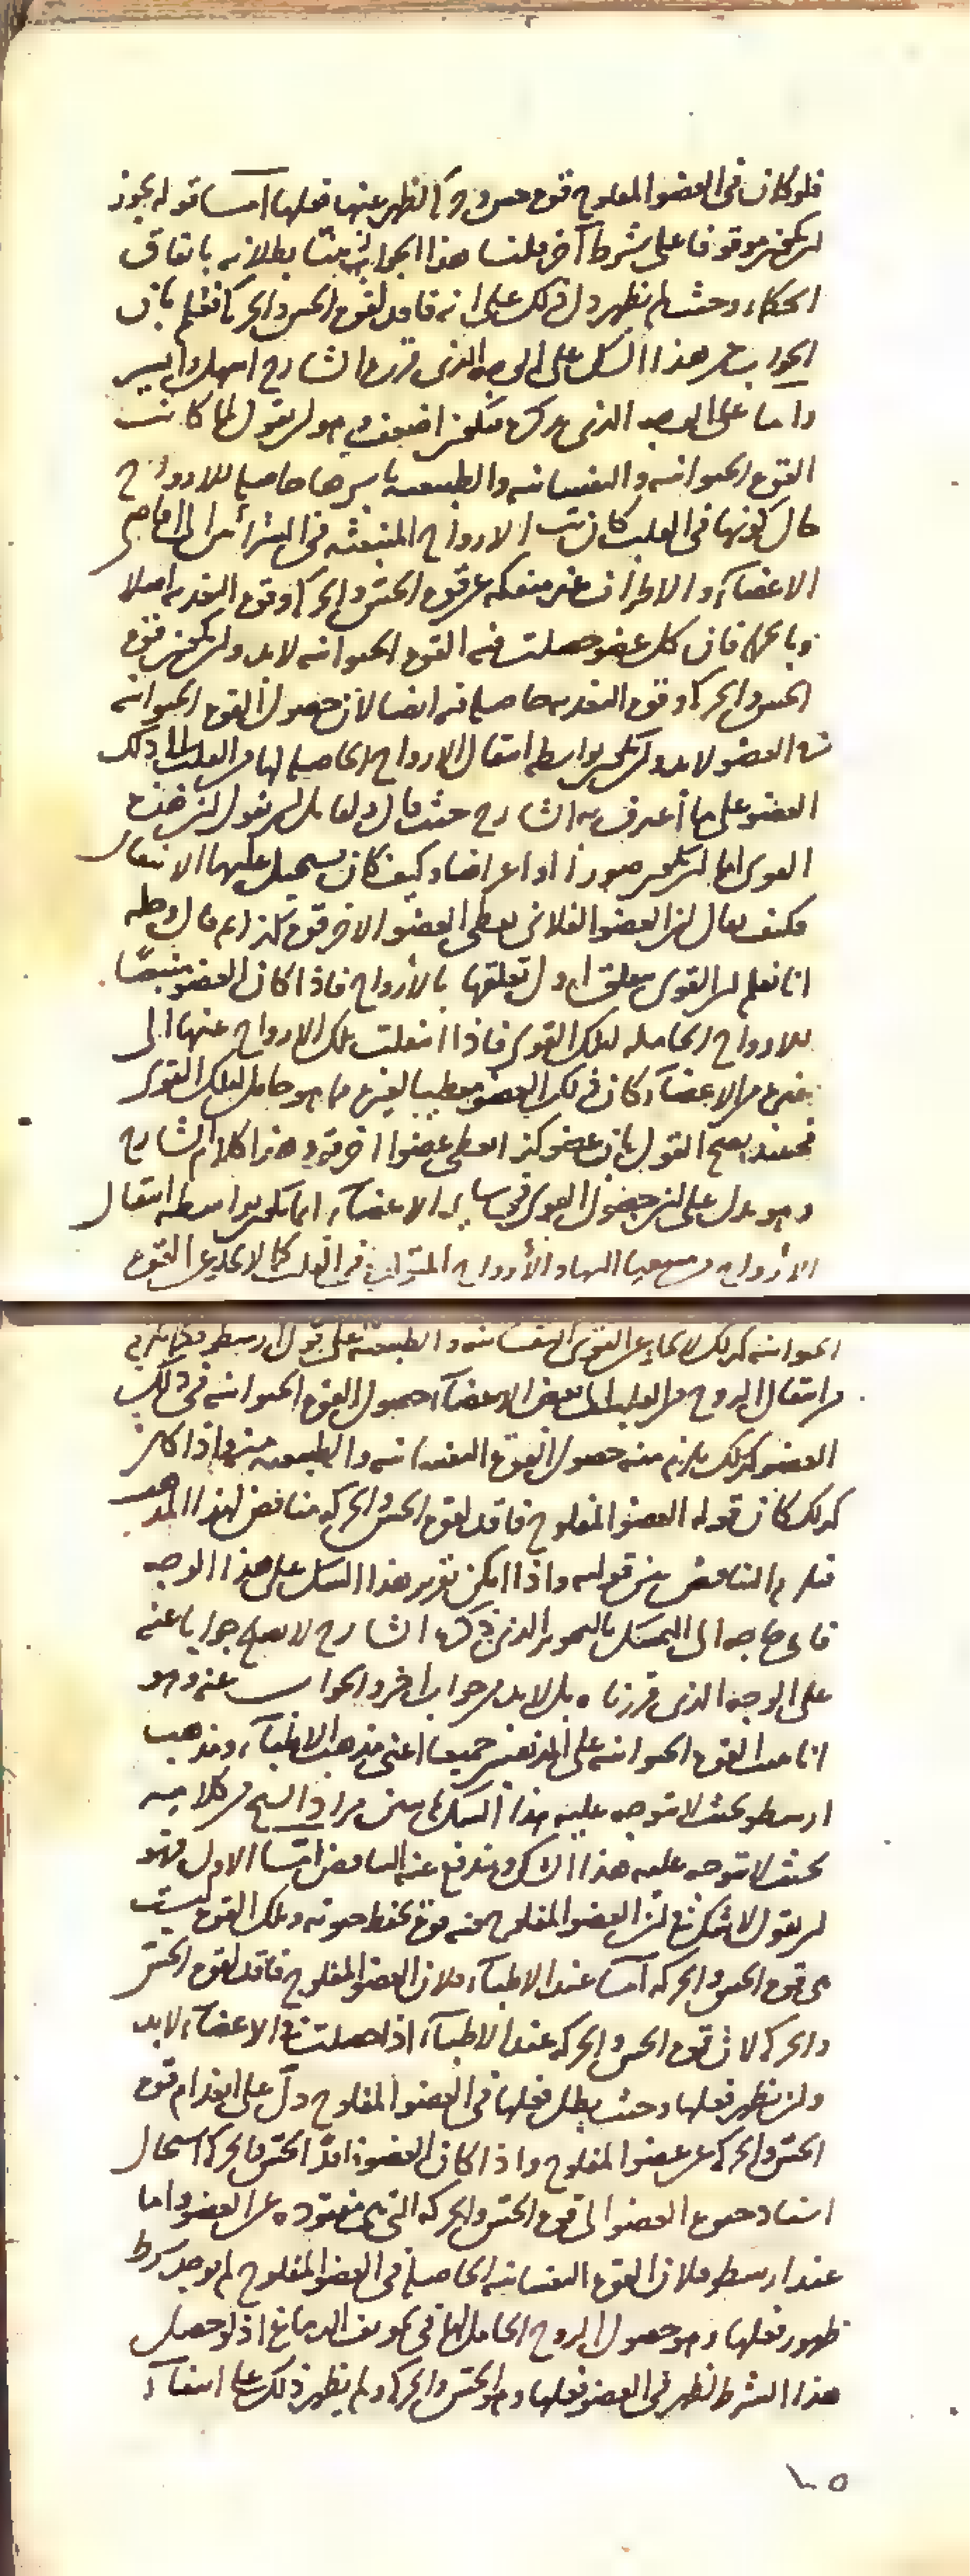 فلو كان فى العضو المفلوج قوة حس وحركة لظهر عنها فعلها اما قوله يجوز
ان يكون موقوفا على شرط آخر قلنا هذا الجواب بينا بطلانه باتفاق
الحكماء وحيث لم يظهر دل ذلك على انه فاقد لقوة الحس والحركة فعلم بان
الجواب عن هذا الشك على الوجه الذى قرره الشارح اسهل وايسر
واما على الوجه الذى فيكون اضعف وهو ان يقول لما كانت
القوة الحيوانية والنفسانية والطبيعية باسرها حاصلة للارواح
حال كونها فى القلب كانت الارواح المنبعثة فى الشرائين الى اقاصى
الاعضاء والاطراف غير منفكة عن قوة الحس والحركة وقوة التغذية اصلا
وبالجملة فان كل عضو حصلت فيه القوة الحيوانية لابد وان يكون قوة
الحس والحركة وقوة التغذية حاصلة فيه ايضا لان حصول القوة الحيوانية
فى العضو لابد وان يكون بواسطة انتقال الارواح الحاصلة لها من القلب الى ذلك
العضو على ما اعترف به الشارح حيث قال ولقائل ان يقول ان هذه
القوى اما ان تكون صورا او اعراضا وكيف كان يستحيل عليها الانتقال
فكيف يقال ان العضو الفلانى يعطى العضو الاخر قوة كذا ثم قال وحله
انا نعلم ان القوى معلق اول تعلقها بالارواح فاذا كان العضو منبعثا
للارواح الحاملة لتلك القوى فاذا انتقلت تلك الارواح عنها الى
غيره من الاعضاء كان ذلك العضو معطيا لغيره ما هو حامل لتلك القوى
فحينئذ يصح القول بان عضو كذا اعطى عضوا اخر قوة هذا كلام الشارح
وهو يدل على ان حصول القوى فى ساير الاعضاء انما يكون بواسطة انتقال
الارواح اليها والارواح المتولدة فى القلب كما لا يخلو عن القوة
الحيوانية كذلك لا يخلو عن القوى النفسانية والطبيعية على قول ارسطو فكما يلزم
من انتقال الروح من القلب الى بعض الاعضاء حصول القوة الحيوانية فى ذلك
العضو كذلك يلزم منه حصول القوة النفسانية والطبيعية فيه واذا كان
كذلك كان قوله العضو المفلوج فاقد لقوة الحس والحركة مناقض لهذا المذهب
فيلزم التناقض بين قوليه واذا امكن تقرير هذا الشك على هذا الوجه
فاى حاجة الى التمسك بالتجويز الذى ذكره الشارح لا يصلح جوابا عنه
على الوجه الذى قررناه بل لابد من جواب اخر والجواب عنه وهو
انا نثبت القوة الحيوانية على المذهبين جميعا اعنى مذهب الاطباء ومذهب
ارسطو بحيث لا يتوجه عليه هذا الشك ثم نبين مراد الشيخ من كلاميه
بحيث لا يتوجه عليه هذا الشك ويندفع عنه التناقض اما الاول فهو
ان يقول لا شك فى ان العضو المفلوج فيه قوة تحفظ حيوته وتلك القوة ليست
هى قوة الحس والحركة اما عند الاطباء فلان العضو المفلوج فاقد لقوة الحس
والحركة لان قوة الحس والحركة عند الاطباء اذا حصلت فى الاعضاء لابد
وان يظهر فعلها وحيث بطل فعلها فى العضو المفلوج دل على انعدام قوة
الحس والحركة عن عضو المفلوج واذا كان العضو فاقد الحس والحركة استحال
استناد حيوة العضو الى قوة الحس والحركة التى هى مفقودة عن العضو واما
عند ارسطو فلان القوة النفسانية الحاصلة فى العضو المفلوج لم يوجد شرط
ظهور فعلها وهو حصول الروح الحامل لها فى تجويف الدماغ اذ لو حصل
هذا الشرط لظهر فى العضو فعلها وهو الحس والحركة ولم يظهر ذلك على انتفاء
١٠٥